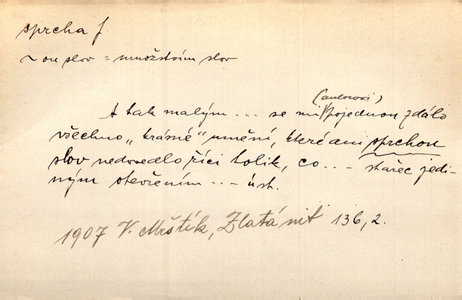 sprcha f.
~ou slov = množstvím slov
(autorovi)
A tak malým ... se mi pojednou zdálo
všechno „krásné“ umění, které ani sprchou
slov nedovedlo říci tolik, co ... stařec jedi-
ným otevřením ... úst.
1907 V. Mrštík, Zlatá nit 136,2.